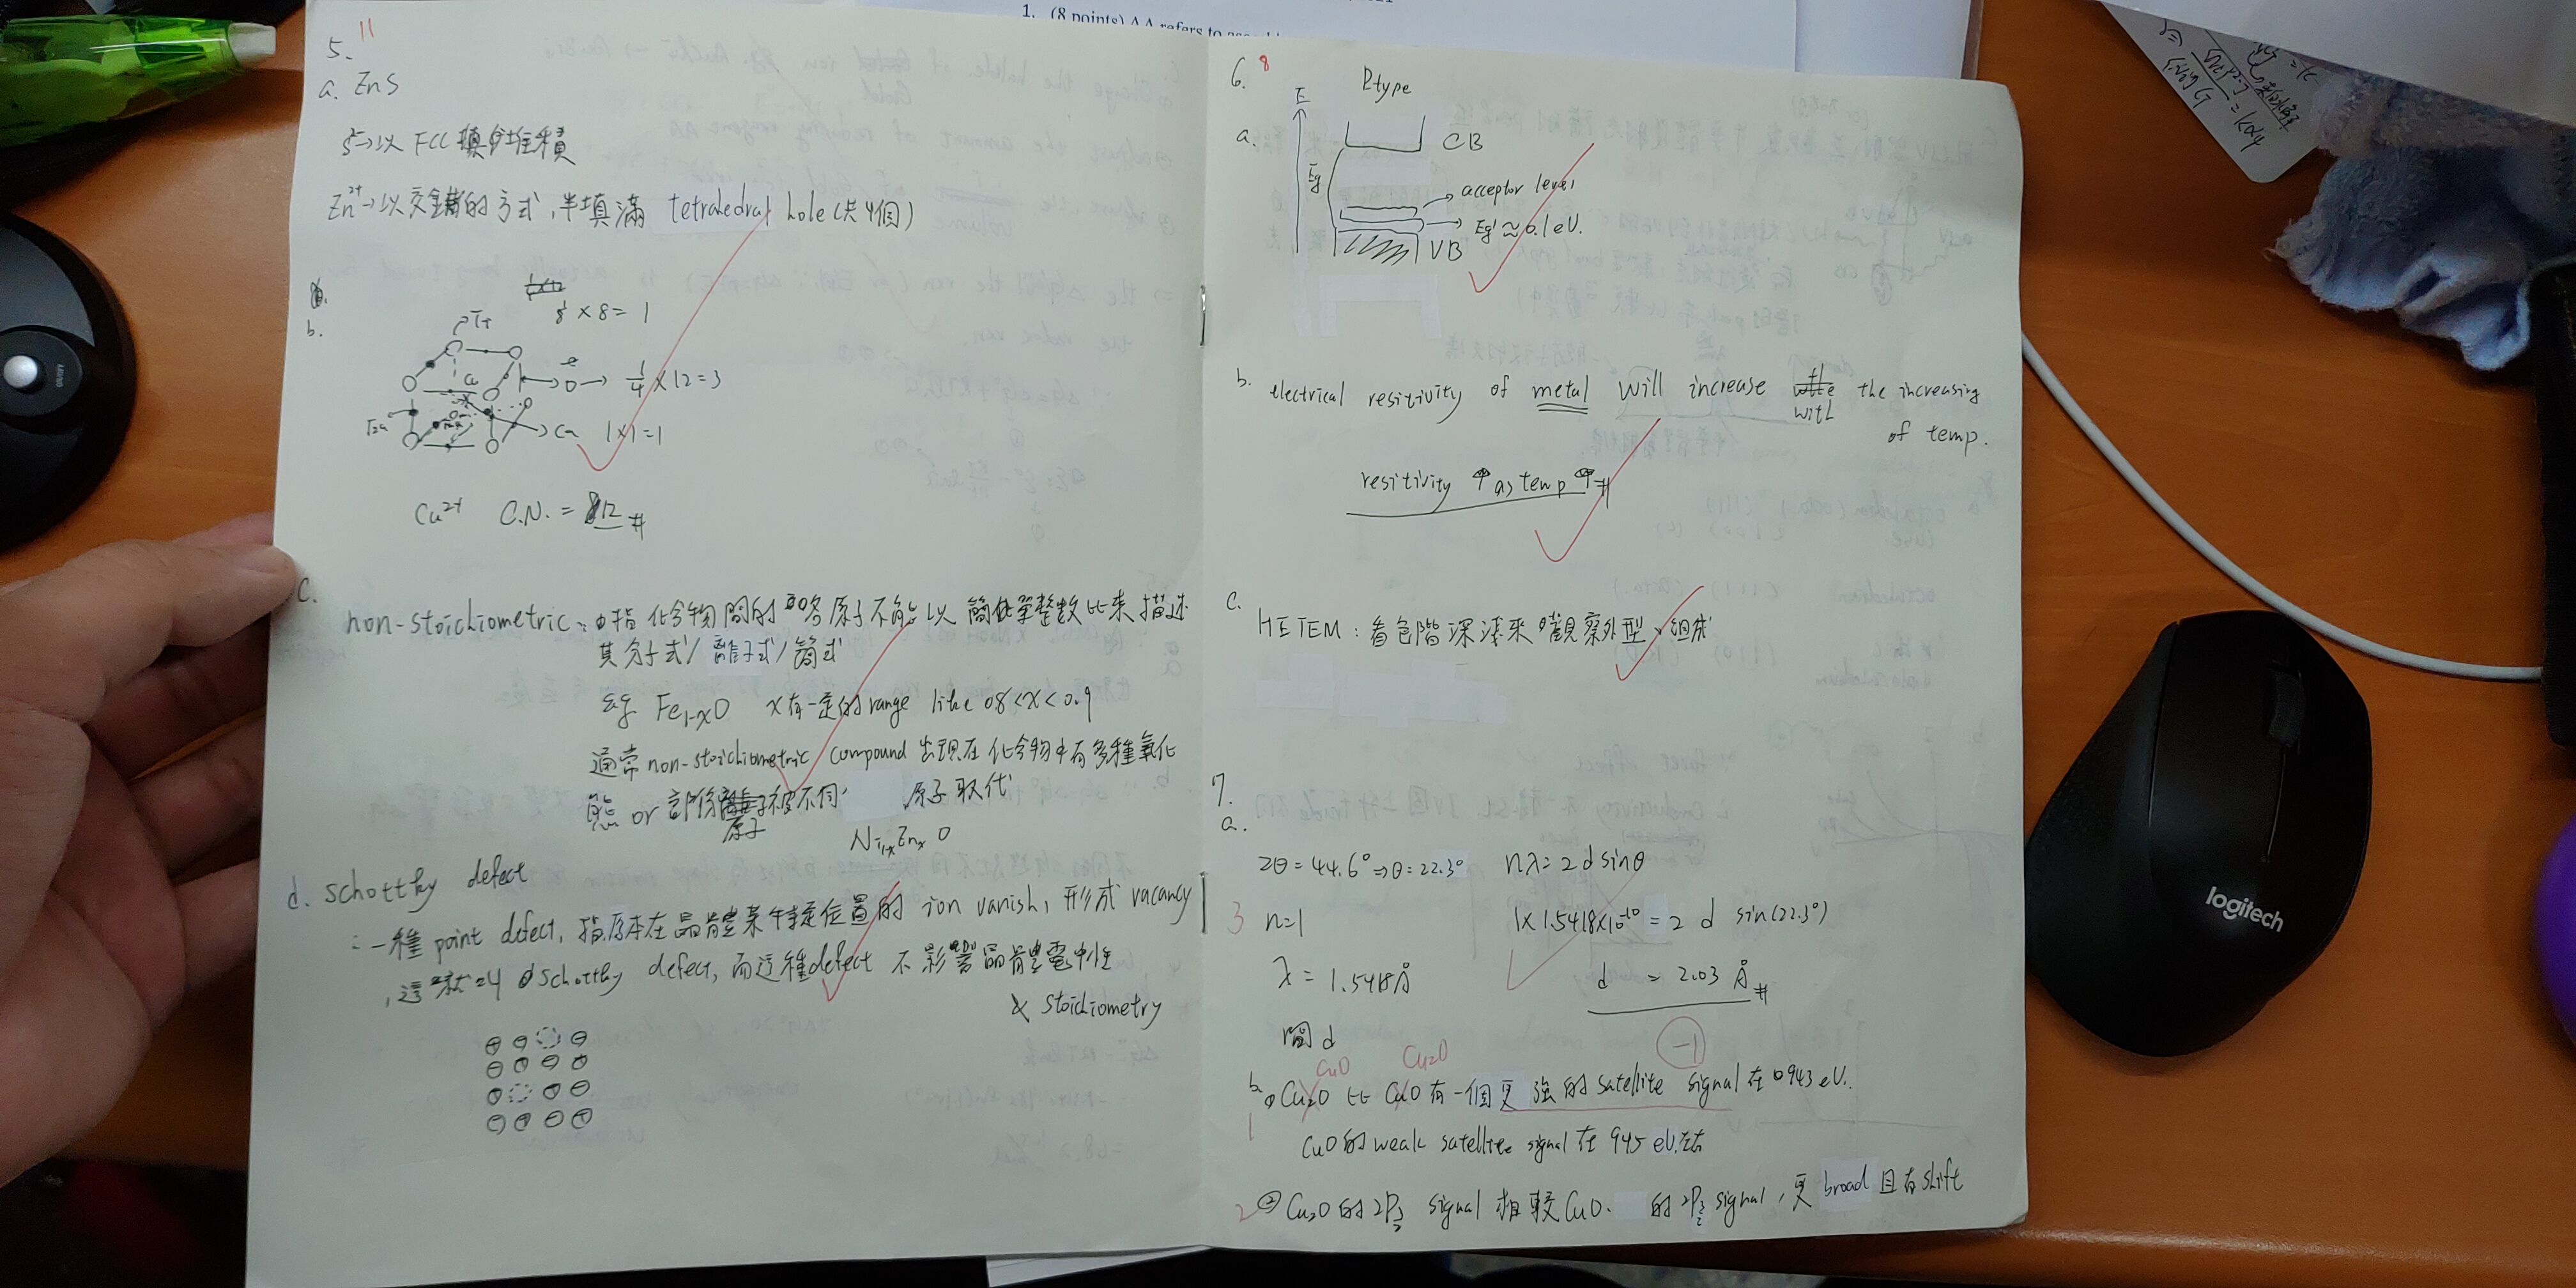 1. (8 points) AA refers to
5. 11
a. ZnS
S²⁻→以 FCC 填堆積
Zn²⁺→以交錯的方式,半填滿 tetrahedral hole(共4個)
b.
1/8 × 8 = 1
Ti
O → 1/4 × 12 = 3
Ca
→ Ca 1×1=1
Ca²⁺ C.N. = 12 #
C.
non-stoichiometric: 指化合物間的各原子不能以簡單整數比來描述
其分子式/離子式/簡式
eg Fe1-xO x有一定的range like 0.8<x<0.9
通常 non-stoichiometric compound 出現在化合物中有多種氧化
態 or 部份原子被不同 原子取代
Ni1-xZnxO
d. schottky defect
= 一種 point defect, 指原本在晶體某特定位置的 ion vanish, 形成 vacancy
, 這就叫 schottky defect, 而這種defect 不影響晶體電中性
& stoichiometry
6. 8
a.
E
P type
CB
Eg
→ acceptor level
→ Eg' ≈ 0.1 eV.
VB
b. electrical resitivity of metal will increase with the increasing
of temp.
resitivity ↑ as temp ↑ #
c.
HETEM: 看色階深淺來觀察外型、組成
7.
a.
2θ = 44.6° ⇒ θ = 22.3° nλ = 2 d sinθ
3 n=1 1×1.5418×10⁻¹⁰ = 2 d sin(22.3°)
λ = 1.5418Å d = 2.03 Å #
問 d
-1
CuO Cu2O
b. ① Cu2O 比 CuO 有一個更強的 satellite signal 在 943 eV.
1
CuO的 weak satellite signal 在 945 eV.左右
2 ② Cu2O 的 2P3/2 signal 相較 CuO. 的 2P3/2 signal, 更 broad 且有 shift
logitech